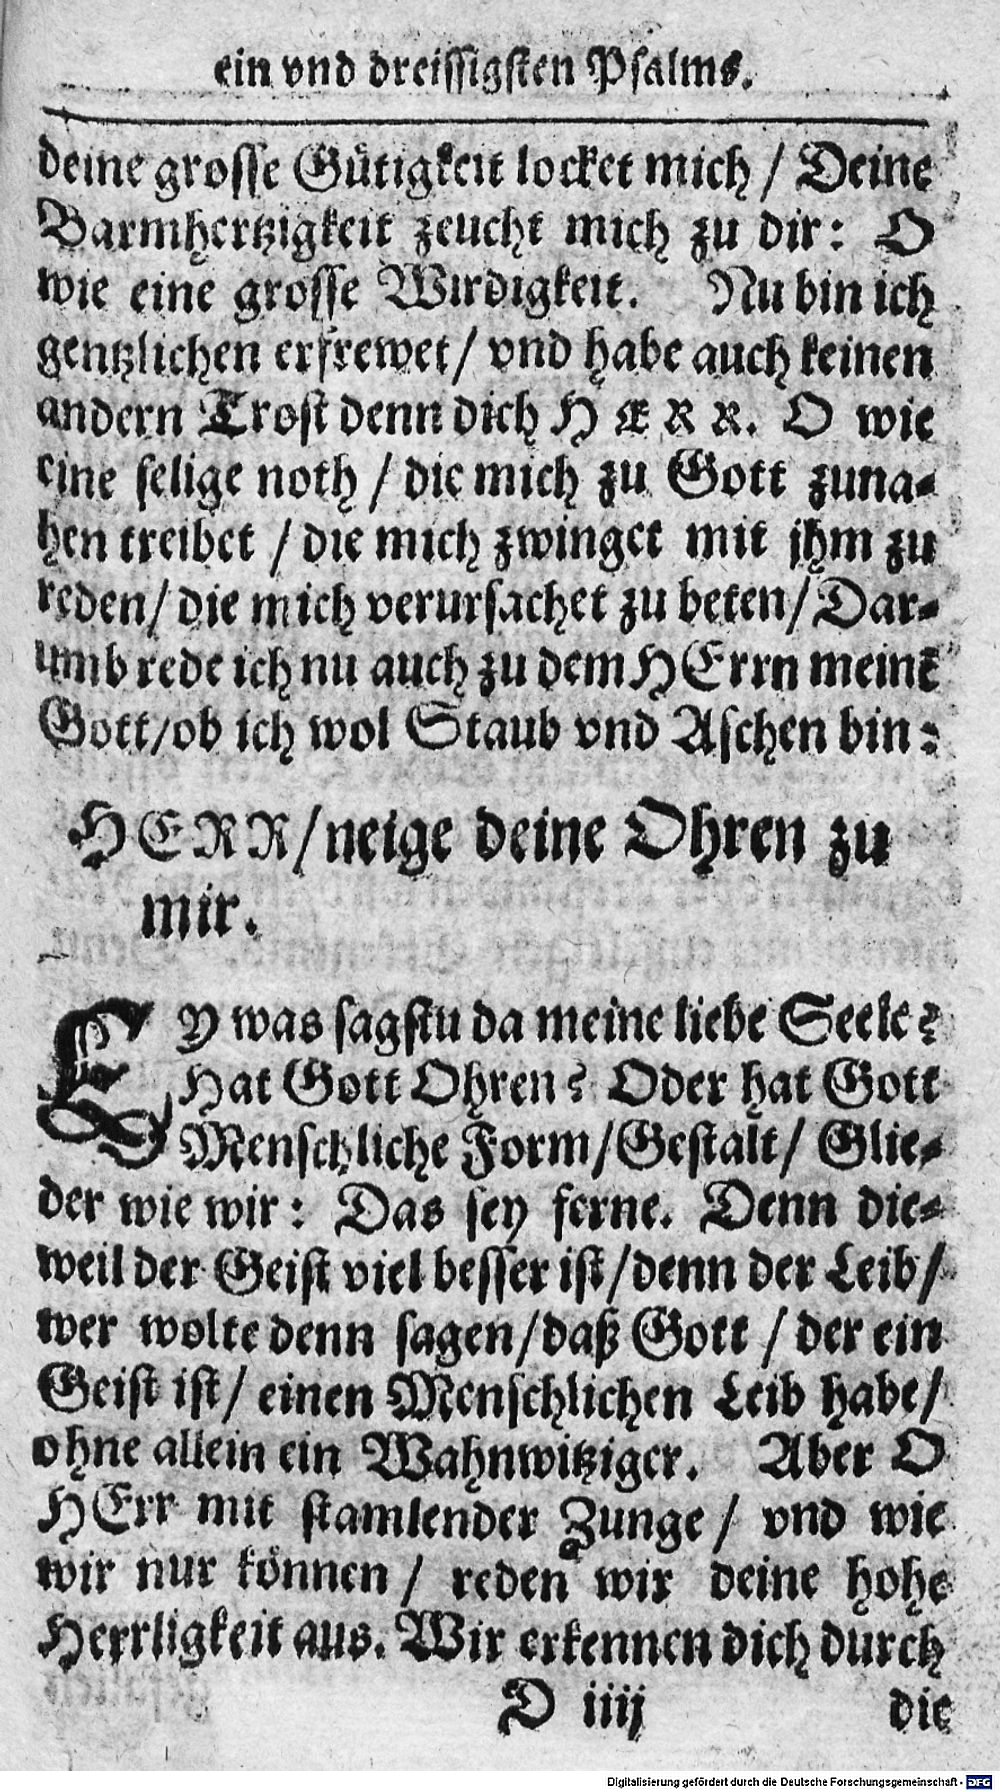 ein vnd dreissigsten Psalms.
deine grosse Gütigkeit locket mich / Deine
Barmhertzigkeit zeucht mich zu dir: O
wie eine grosse Wirdigkeit. Nu bin ich
gentzlichen erfrewet / vnd habe auch keinen
andern Trost denn dich HERR. O wie
eine selige noth / die mich zu Gott zuna-
hen treibet / die mich zwinget mit jhm zu
reden / die mich verursachet zu beten / Dar-
umb rede ich nu auch zu dem HErrn meinē
Gott / ob ich wol Staub vnd Aschen bin:
HERR / neige deine Ohren zu
mir.
EY was sagstu da meine liebe Seele?
Hat Gott Ohren? Oder hat Gott
Menschliche Form / Gestalt / Glie-
der wie wir: Das sey ferne. Denn die-
weil der Geist viel besser ist / denn der Leib /
wer wolte denn sagen / daß Gott / der ein
Geist ist / einen Menschlichen Leib habe /
ohne allein ein Wahnwitziger. Aber O
HErr mit stamlender Zunge / vnd wie
wir nur können / reden wir deine hohe
Herrligkeit aus. Wir erkennen dich durch
D iiij die
Digitalisierung gefördert durch die Deutsche Forschungsgemeinschaft - DFG